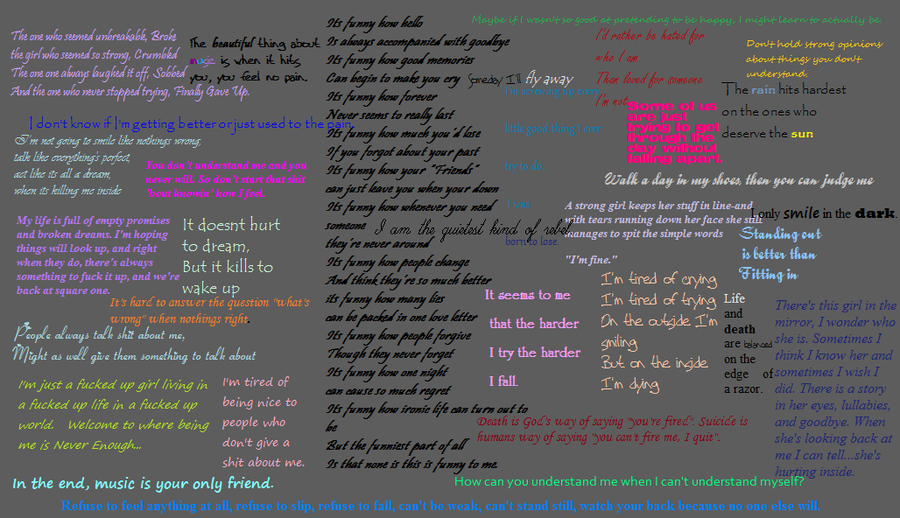 Maybe if I wasn't so good at pretending to be happy, I might learn to actually be.
The one who seemed unbreakable, Broke
the girl who seemed so strong, Crumbled
The one one always laughed it off, Sobbed
And the one who never stopped trying, Finally Gave Up.
The beautiful thing about
music is when it hits
you, you feel no pain.
Its funny how hello
Is always accompanied with goodbye
Its funny how good memories
Can begin to make you cry
Its funny how forever
Never seems to really last
Its funny how much you'd lose
If you forgot about your past
Its funny how your "Friends"
can just leave you when your down
Its funny how whenever you need
someone
they're never around
Its funny how people change
And think they're so much better
its funny how many lies
can be packed in one love letter
Its funny how people forgive
Though they never forget
Its funny how one night
can cause so much regret
Its funny how ironic life can turn out to
be
But the funniest part of all
Is that none is this is funny to me.
Someday I'll fly away
I'd rather be hated for
who I am
Than loved for someone
I'm not.
Don't hold strong opinions
about things you don't
understand.
I'm screwing up every
little good thing I ever
try to do.
I was
born to lose.
Some of us
are just
trying to get
through the
day without
falling apart.
The rain hits hardest
on the ones who
deserve the sun
I don't know if I'm getting better or just used to the pain.
I'm not going to smile like nothings wrong,
talk like everything's perfect,
act like its all a dream,
when its killing me inside
You don't understand me and you
never will. So don't start that shit
'bout knowin' how I feel.
Walk a day in my shoes, then you can judge me
A strong girl keeps her stuff in line-and
with tears running down her face she still
manages to spit the simple words
"I'm fine."
I only smile in the dark.
I am the quietest kind of rebel
Standing out
is better than
Fitting in
My life is full of empty promises
and broken dreams. I'm hoping
things will look up, and right
when they do, there's always
something to fuck it up, and we're
back at square one.
It doesnt hurt
to dream,
But it kills to
wake up
It's hard to answer the question "what's
wrong" when nothings right.
People always talk shit about me,
Might as well give them something to talk about
It seems to me
that the harder
I try the harder
I fall.
I'm tired of crying
I'm tired of trying
On the outside I'm
smiling
But on the inside
I'm dying
Life
and
death
are balanced
on the
edge of
a razor.
There's this girl in the
mirror, I wonder who
she is. Sometimes I
think I know her and
sometimes I wish I
did. There is a story
in her eyes, lullabies,
and goodbye. When
she's looking back at
me I can tell...she's
hurting inside.
I'm just a fucked up girl living in
a fucked up life in a fucked up
world. Welcome to where being
me is Never Enough...
I'm tired of
being nice to
people who
don't give a
shit about me.
Death is God's way of saying "you're fired". Suicide is
humans way of saying "you can't fire me, I quit".
In the end, music is your only friend.
How can you understand me when I can't understand myself?
Refuse to feel anything at all, refuse to slip, refuse to fall, can't be weak, can't stand still, watch your back because no one else will.